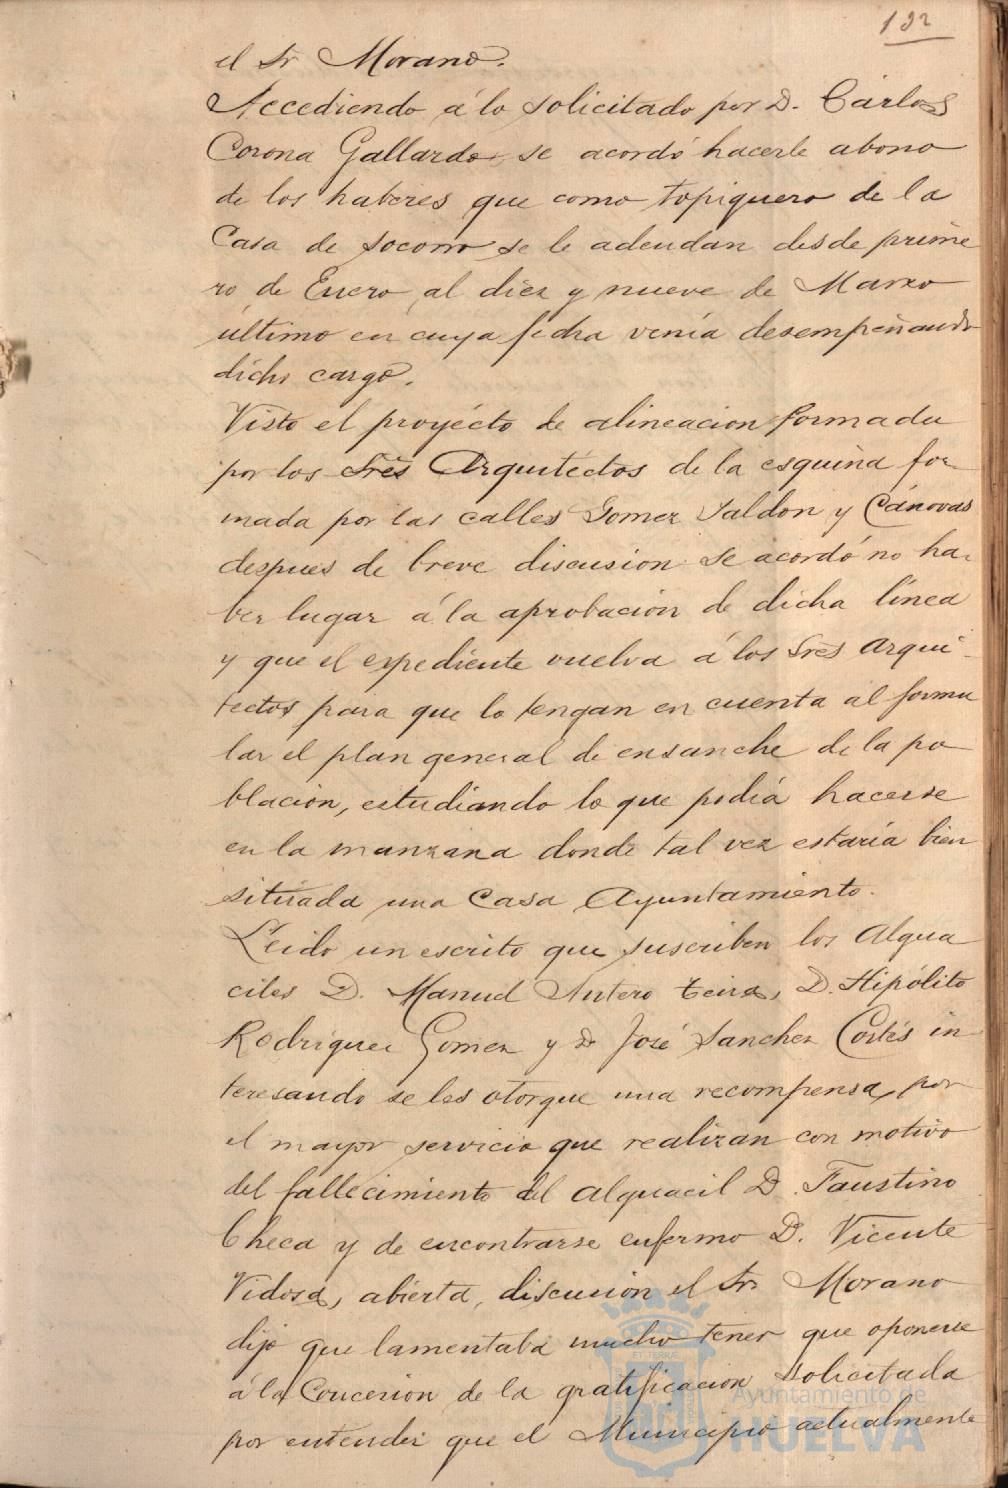 122
el Sr Morano.
Accediendo á lo solicitado por D. Cárlos
Corona Gallardo, se acordó hacerle abono
de los haberes que como topiquero de la
Casa de Socorro se le adeudan desde prime
ro de Enero al diez y nueve de Marzo
último en cuya fecha venía desempeñando
dicho cargo.
Visto el proyécto de alineacion formado
por los Sres Arquitectos de la esquina for
mada por las calles Gomez Jaldon y Cánovas
despues de breve discusion se acordó no ha-
ber lugar á la aprobacion de dicha línea
y que el espediente vuelva á los Sres Arqui-
tectos para que lo tengan en cuenta al formu
lar el plan general de ensanche de la po
blacion, estudiando lo que podiá hacerse
en la manzana donde tal vez estaría bien
situada una Casa Ayuntamiento.
Léido un escrito que suscriben los Algua
ciles D. Manuel Antero Teira, D. Hipólito
Rodriguez Gomez y D José Sanchez Cortés in
teresando se les otorgue una recompensa, por
el mayor servicio que realizan con motivo
del fallecimiento del alguacil D. Faustino
Checa y de encontrarse enfermo D. Vicente
Vidosa, abierta discusion el Sr Morano
dijo que lamentaba mucho tener que oponerse
á la Concesion de la gratificacion solicitada
por entender que el Municipio actualmente
Ayuntamiento de
HUELVA